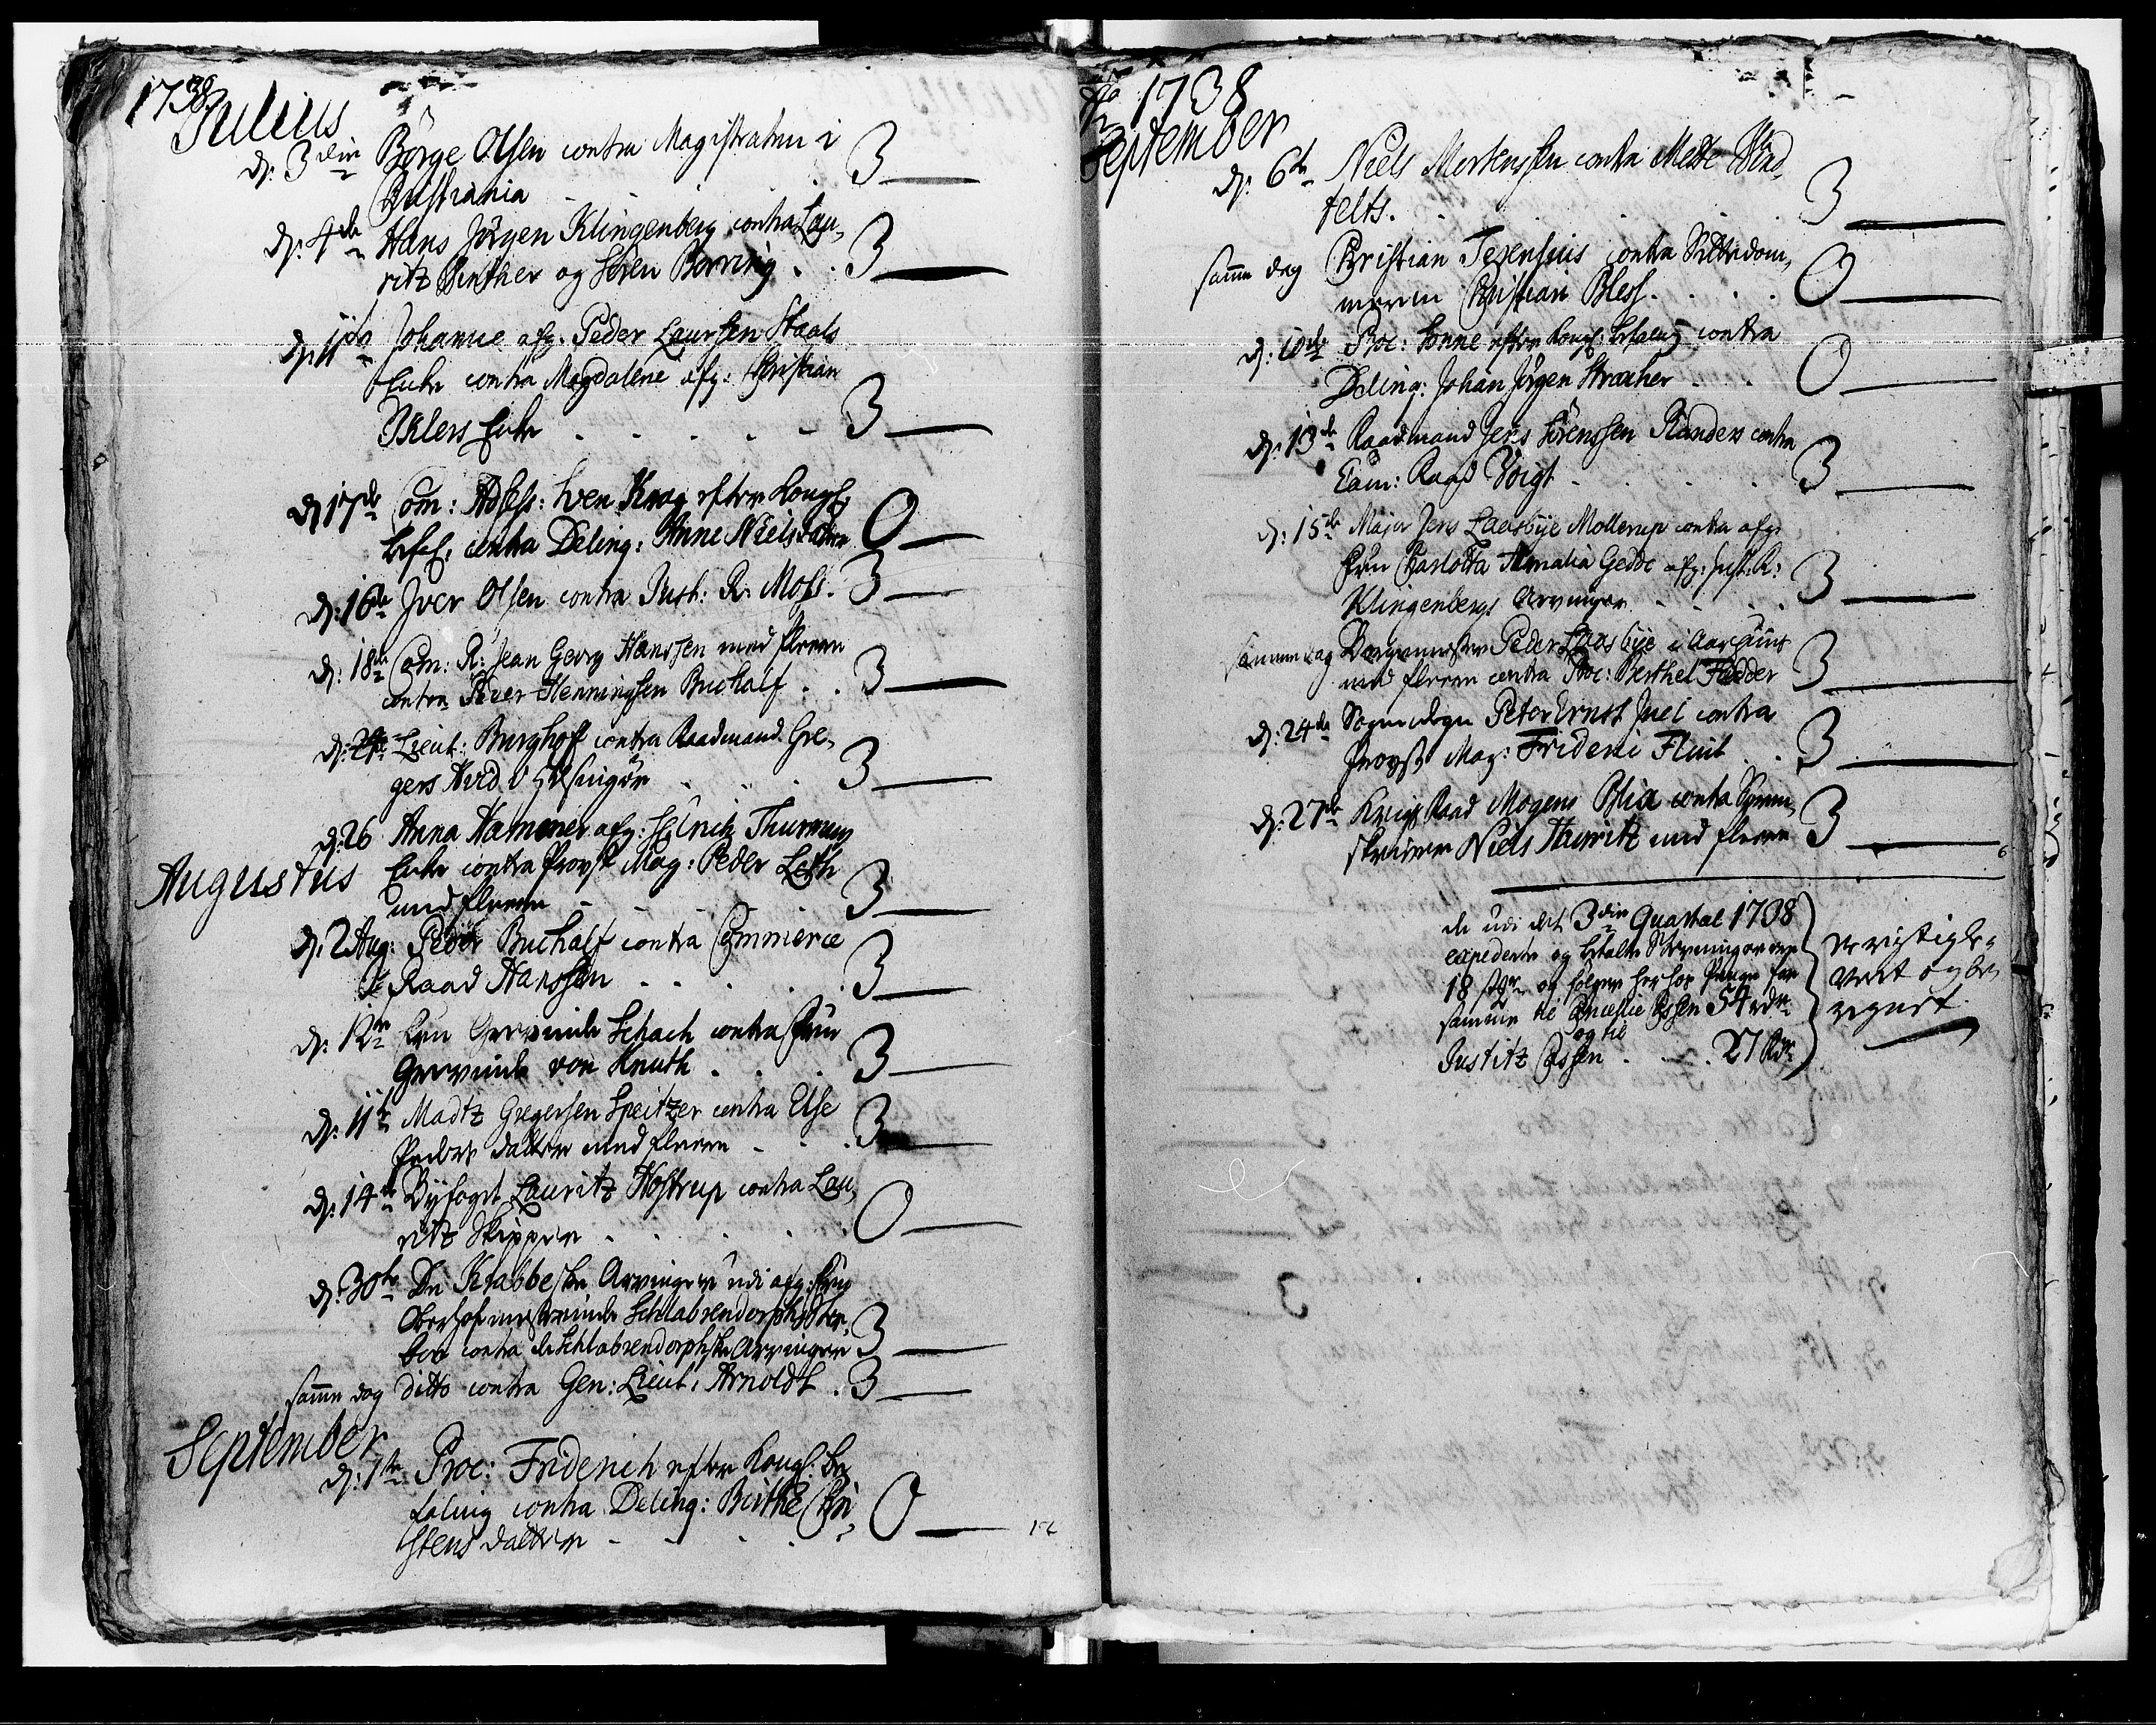 1738.
Julius
d: 3die Børge Olsen contra Magistraten i
Christiania 3
d: 4de Hans Jørgen Klingenberg contra Lau-
ritz Winther og Søren Borring . . 3
d: 11te Johanne afg. Peder Laursen Staals
Enke contra Magdalene afg: Christian
Enke 3
d 17de Com: Assess: Iven Krag efter Kongl:
befal. contra Deling: Anne Nielsdatter 0
d: 16de Iver Olsen contra Just: R: Moss. 3
d: 18de Com: R: Jean Georg Hanssen med fleere
contra Peder Henningsen Bucholf . . 3
d: Lieut: Burghoff contra Raadmand Gre-
gers Hvid i Helsingør 3
d: 26 Anna Hammer afg:
Enke contra Provst Mag: Peder Leth
Augustus
med fleere 3
d. 2 Aug: Peder Bucholf contra Commerce
Raad Hanssen 3
d: 12te Fru Grevinde Schach contra Fru
Grevinde von Knuth 3
d: 11te Madtz Gregersen Speitzer contra Else
Peders datter med fleere 3
d: 14de Byfoget Lauritz Hostrup contra Lau-
ritz Skipper 0
d: 30te De Krabbeske Arvinger udi afg: Frue
Oberhofmesterinde Schlabrendorphs Ster-
boe contra de Schlabrendorphske Arvinger 3
samme dag ditto contra Gen: Lieut: Arnoldt . 3
September
d: 1te Proc: Friderich efter Kongl: be-
faling contra Deling: Birthe Chri-
stens datter 0
Ao 1738
September
d: 6te Niels Mortensen contra Mette Wind-
felts. 3
samme dag Christian Jesensius contra Birkedom-
meren Christian Bless. 0
d: 10de Proc: Sonne efter Kongl: befaling contra
Deling: Johan Jørgen Stracher 0
d: 13de Raadmand Jens Sørenssen Randers contra
Cam: Raad Voigt 3
d: 15de Major Jens Laasbye Mollerup contra afg.
Fru Charlotta Amalia Gedde afg: Just: R:
Klingenbergs Arvinger 3
samme dag Borgemester Peder Laasbye i Aarhuus
med fleere contra Proc: Berthel Fedder 3
d: 24de Sognedegn Peter Ernst Juel contra
Provst Mag: Frideric Flint . . 3
d: 27de Krigs Raad Mogens Blix contra Soren-
skriver Niels Hauritz med fleere 3
de udi det 3die Quartal 1738
expederte og betalte Stevninger ere
18 st: og følger herhos Penge for
samme til Cancellie Cassen 54 rdr
og til
Justitz Cassen . . . 27 Rdr